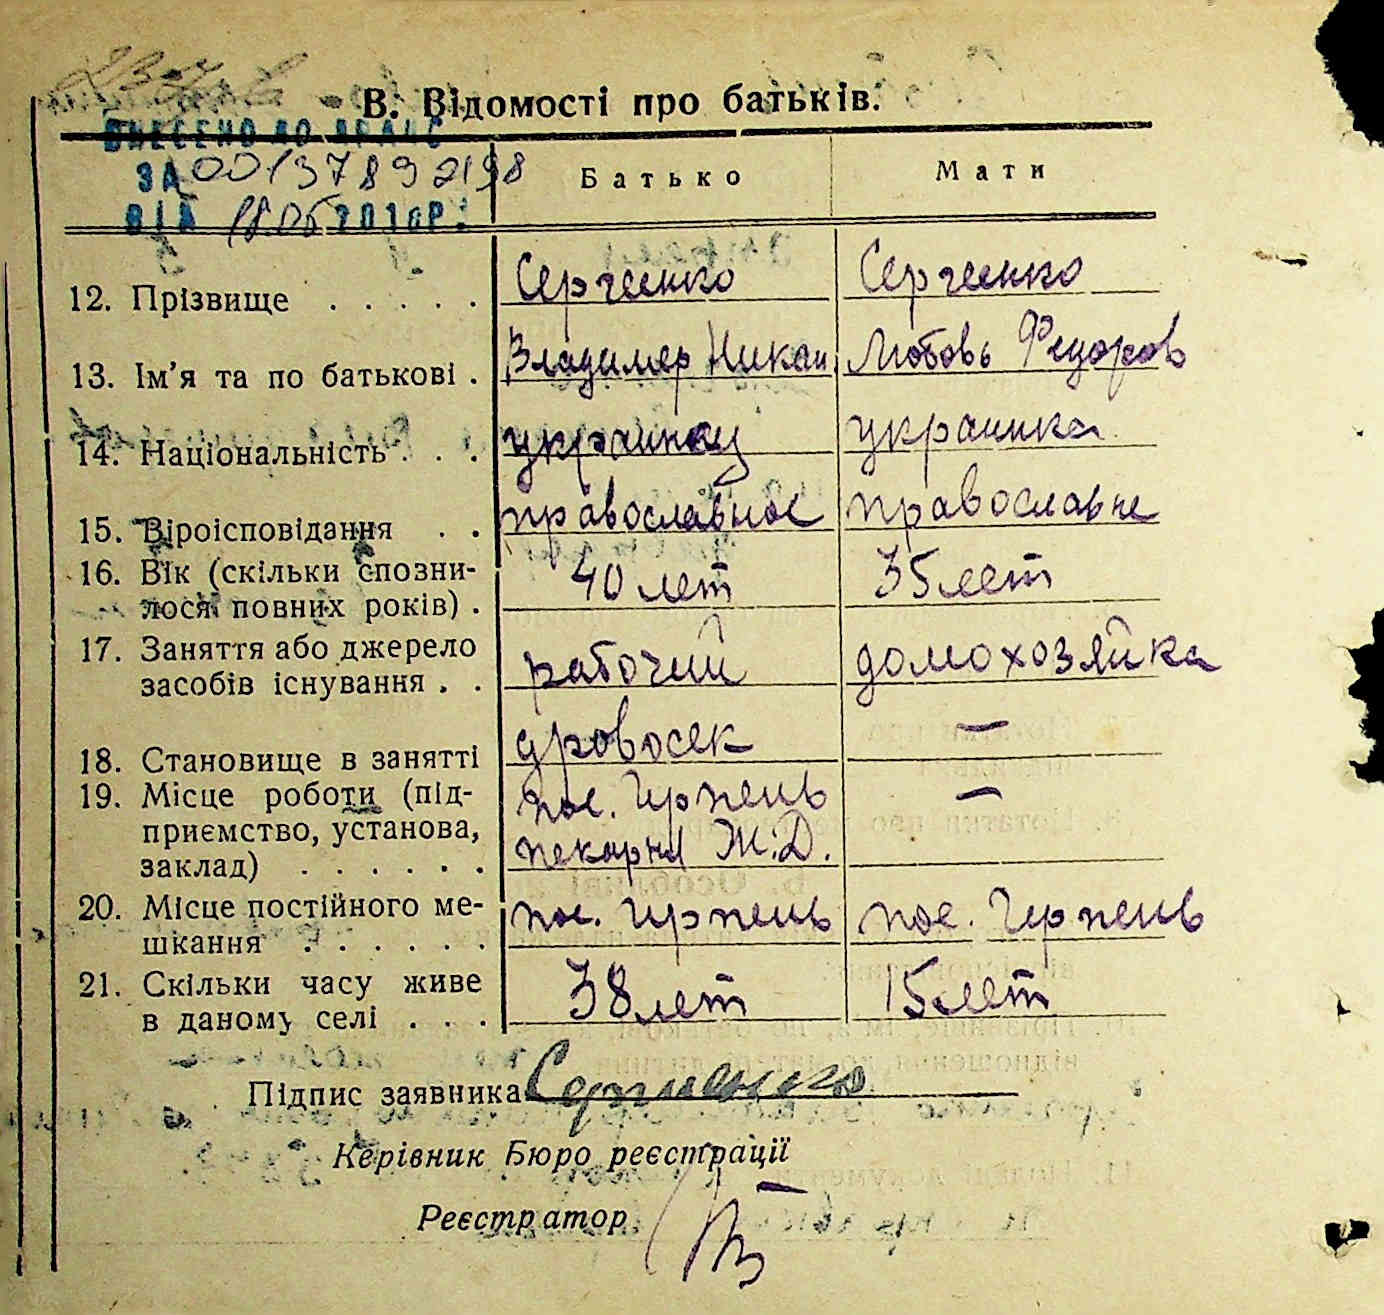 В. Відомості про батьків.
ВНЕСЕНО ДО ДРАЦС
ЗА 00137892198
ВІД 18.05 2016Р.
Батько Мати
12. Прізвище . . . . . Сергиенко Сергиенко
13. Ім'я та по батькові . Владимер Никан. Любовь Федоров
14. Національність . . . украинец украинка
15. Віроісповідання . . православное православне
16. Вік (скільки сповни-
лося повних років) . 40 лет 35 лет
17. Заняття або джерело
засобів існування . . рабочий домохозяйка
18. Становище в занятті дровосек —
19. Місце роботи (під- пос. Ирпень —
приємство, установа, пекарня Ж.Д.
заклад) . . . . . .
20. Місце постійного ме- пос. Ирпень пос. Ирпень
шкання . . . . . .
21. Скільки часу живе 38 лет 15 лет
в даному селі . . .
Підпис заявника Сергиенко
Керівник Бюро реєстрації
Реєстратор